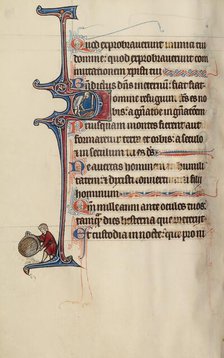 Quod exprobrauerunt inimici tui
domine: quod exprobrauerunt com
mutationem xpisti tui
Benedictus dns in eternum: fiat fiat
Domine refugium factus es no
bis: a generatione in generatiom
Priusquam montes fierent aut
formaretur terra et orbis: a seculo
in seculum tu es ds
Ne auertas hominem in humili
tatem: et dixisti conuertimini filii
hominum
Qm mille anni ante oculos tuos:
tamqm dies hesterna que preteriit
Et custodia in nocte: que pro ni